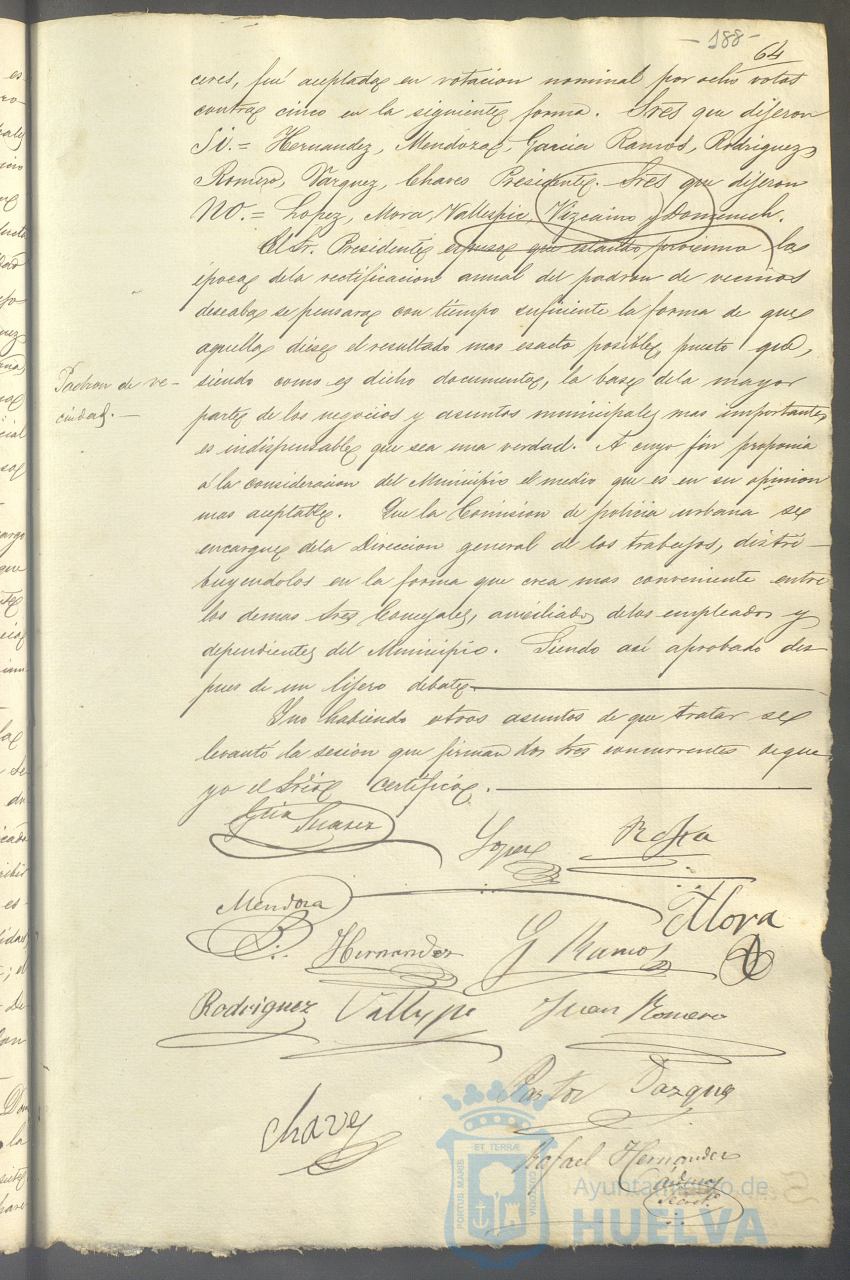 -188-
64
ceres, fué aceptada en votacion nominal por ocho votos
contra cinco en la siguiente forma. Sres que dijeron
Si.= Hernandez, Mendoza, Garcia Ramos, Rodriguez,
Romero, Vazquez, Chaves Presidente. Sres que dijeron
NO.= Lopez, Mora, Vallespin, Vizcaino y Domenech.
El Sr. Presidente expuso que estando proxima la
época dela rectificacion anual del padron de vecinos
deseaba se pensara con tiempo suficiente la forma de que
aquella diese el resultado mas esacto posible, puesto que,
Padron de ve-
cindad.-
siendo como es dicho documento, la base dela mayor
parte de los negocios y asuntos municipales mas importantes
es indispensable que sea una verdad. A cuyo fin proponia
á la consideracion del Municipio el medio que es en su opinion
mas aceptable. Que la Comision de policia urbana se
encargue dela Direccion general de los trabajos, distri-
buyendolos en la forma que crea mas conveniente entre
los demas Sres Concejales, auxiliados delos empleados y
dependientes del Municipio. Siendo asi aprobado des
pues de un lijero debate.
Y no habiendo otros asuntos de que tratar se
levantó la sesion que firman los Sres concurrentes de que
yo el Srio certifico.
Suarez
Lopez
Mendoza
Mora
Hernandez
G Ramos
Rodriguez
Juan Romero
Pastor
Vazquez
Chaves
Rafael Hernandez
Secret.
ET TERRÆ
PORTUS MARIS
CUSTODIA
Ayuntamiento de
HUELVA